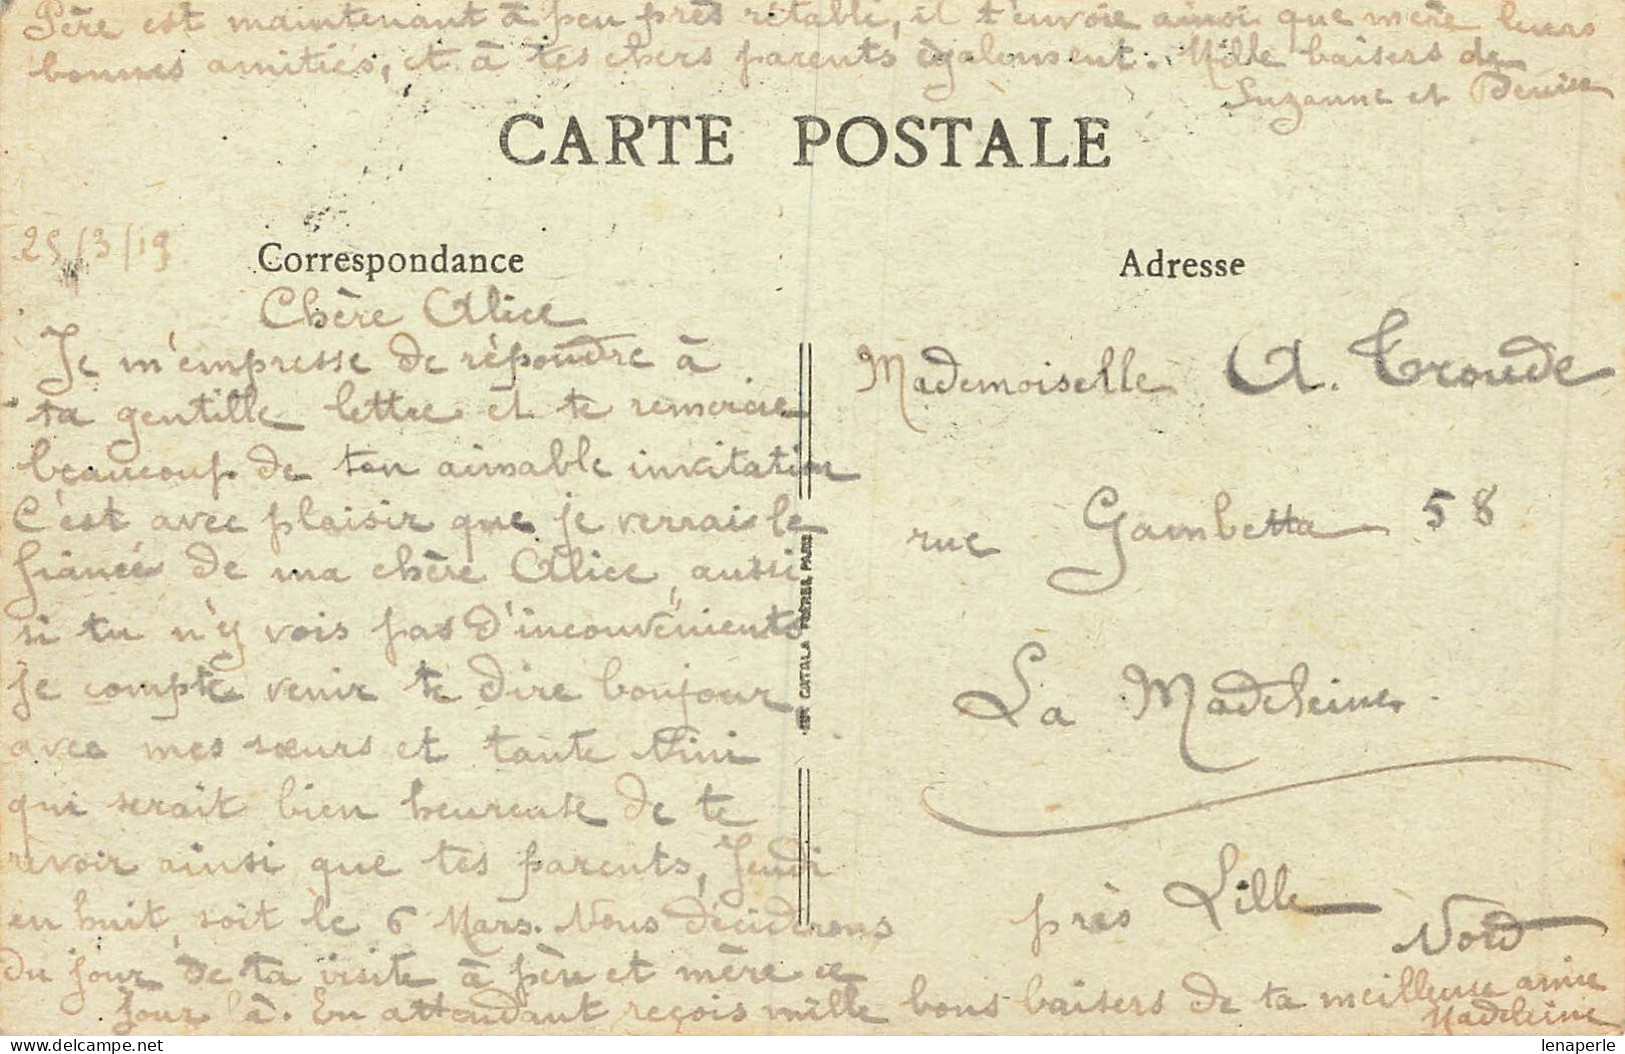 Père est maintenant à peu près rétabli, il t'envoie ainsi que mère leurs
bonnes amitiés, et à tes chers parents également. Mille baisers de
Suzanne et Denise
CARTE POSTALE
25/3/19
Correspondance
Chère Alice
Je m'empresse de répondre à
ta gentille lettre et te remercie
beaucoup de ton aimable invitation
C'est avec plaisir que je verrais le
fiancée de ma chère Alice, aussi
si tu n'y vois pas d'inconvénients
je compte venir te dire bonjour
avec mes sœurs et tante Nini
qui serait bien heureuse de te
revoir ainsi que tes parents, Jeudi
en huit, soit le 6 Mars. Nous déciderons
du jour de ta visite à père et mère ce
jour là. En attendant reçois mille bons baisers de ta meilleure amie
Madeleine
CATALA FRÈRES, PARIS
Adresse
Mademoiselle A. Troude
rue Gambetta 58
La Madeleine
près Lille
Nord
lenaperle